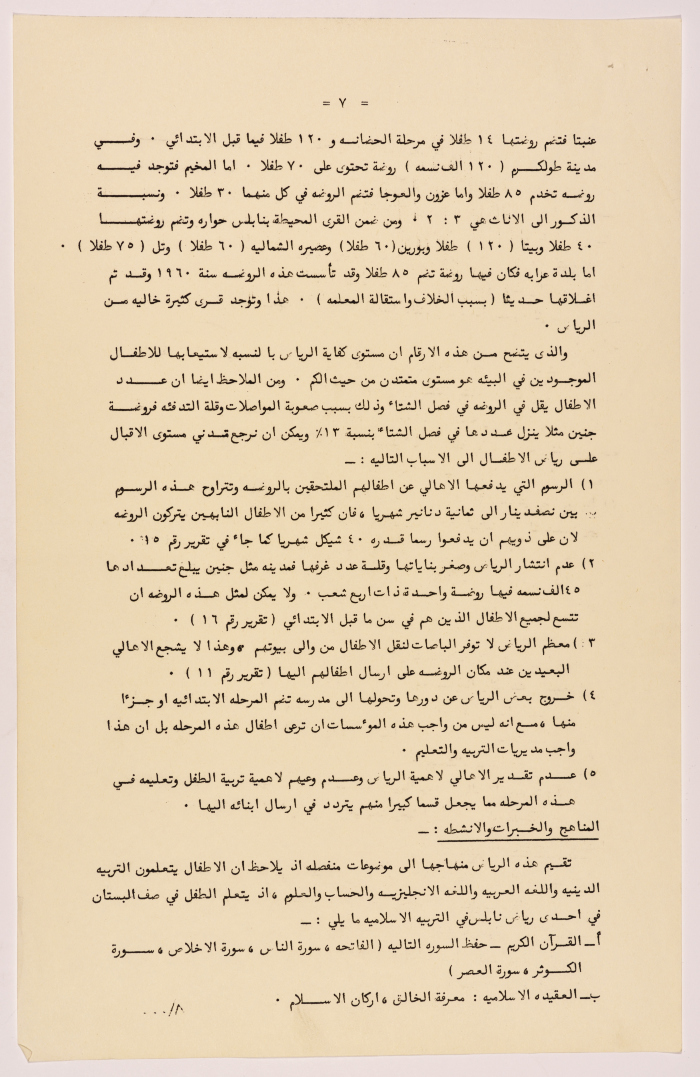 = ٧ =
عنبتا فتضم روضتها ١٤ طفلا في مرحلة الحضانه و ١٢٠ طفلا فيما قبل الابتدائي ٠ وفي
مدينة طولكرم ( ١٢٠ الف نسمه ) روضة تحتوى على ٧٠ طفلا ٠ اما المخيم فتوجد فيه
روضه تخدم ٨٥ طفلا واما عزون والعوجا فتضم الروضه في كل منهما ٣٠ طفلا ٠ ونسبة
الذكور الى الاناث هي ٣ : ٢ ، ومن ضمن القرى المحيطة بنابلس حواره وتضم روضتها
٤٠ طفلا وبيتا ( ١٢٠ ) طفلا وبورين(٦٠ طفلا) وعصيره الشماليه ( ٦٠ طفلا ) وتل ( ٧٥ طفلا ) ٠
اما بلدة عرابه فكان فيها روضة تضم ٨٥ طفلا وقد تأسست هذه الروضه سنة ١٩٦٠ وقد تم
اغلاقها حديثا ( بسبب الخلاف واستقالة المعلمه ) ٠ هذا وتوجد قرى كثيرة خاليه من
الرياض ٠
والذى يتضح من هذه الارقام ان مستوى كفاية الرياض با لنسبه لاستيعابها للاطفال
الموجودين في البيئه هو مستوى متمتدن من حيث الكم ٠ ومن الملاحظ ايضا ان عدد
الاطفال يقل في الروضه في فصل الشتاء وذلك بسبب صعوبة المواصلات وقلة التدفئه فروضة
جنين مثلا ينزل عددها في فصل الشتاء بنسبة ١٣٪ ويمكن ان نرجع تدني مستوى الاقبال
على رياض الاطفال الى الاسباب التاليه : ــ
١) الرسوم التي يدفعها الاهالي عن اطفالهم الملتحقين بالروضه وتتراوح هذه الرسوم
بين نصف دينار الى ثمانية دنانير شهريا ، فان كثيرا من الاطفال النابهين يتركون الروضه
لان على ذويهم ان يدفعوا رسما قدره ٤٠ شيكل شهريا كما جاء في تقرير رقم ١٥ ٠
٢) عدم انتشار الرياض وصغر بناياتها وقلة عدد غرفها فمدينه مثل جنين يبلغ تعدادها
٤٥الف نسمه فيها روضة واحدة ذات اربع شعب ٠ ولا يمكن لمثل هذه الروضه ان
تتسع لجميع الاطفال الذين هم في سن ما قبل الابتدائي ( تقرير رقم ١٦ ) ٠
٣ ) معظم الرياض لا توفر الباصات لنقل الاطفال من والى بيوتهم ، وهذا لا يشجع الاهالي
البعيدين عند مكان الروضه على ارسال اطفالهم اليها ( تقرير رقم ١١ ) ٠
٤) خروج بعض الرياض عن دورها وتحولها الى مدرسه تضم المرحله الابتدائيه او جزءا
منها ، مع انه ليس من واجب هذه المؤسسات ان ترعى اطفال هذه المرحله بل ان هذا
واجب مديريات التربيه والتعليم ٠
٥) عدم تقدير الاهالي لاهمية الرياض وعدم وعيهم لاهمية تربية الطفل وتعليمه في
هذه المرحله مما يجعل قسما كبيرا منهم يتردد في ارسال ابنائه اليها ٠
المناهج والخبرات والانشطه : ــ
تقيم هذه الرياض منهاجها الى موضوعات منفصله اذ يلاحظ ان الاطفال يتعلمون التربيه
الدينيه واللغه العربيه واللغه الانجليزيه والحساب والعلوم ، اذ يتعلم الطفل في صف البستان
في احدى رياض نابلس في التربيه الاسلاميه ما يلي : ــ
أ ــ القرآن الكريم ــ حفظ السوره التاليه ( الفاتحه ، سورة الناس ، سورة الاخلاص ، سورة
الكوثر ، سورة العصر )
ب ــ العقيده الاسلاميه : معرفة الخالق ، اركان الاسلام ٠
٠٠٠/٨